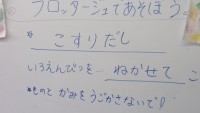 フロッタージュであそぼう
* こすりだし
いろえんぴつを ねかせて こ
*ものと かみをうごかさないで!